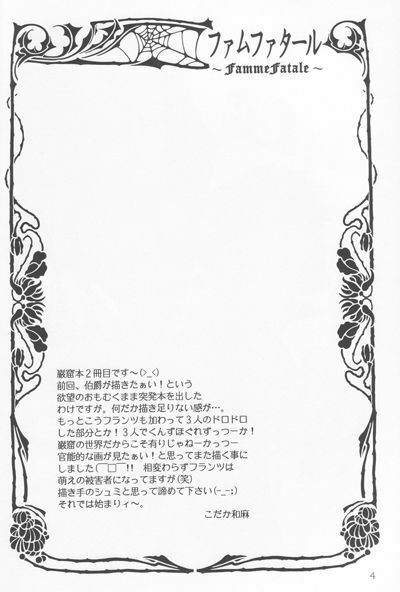 ファムファタール
～FammeFatale～
巌窟本2冊目です～(>_<)
前回、伯爵が描きたぁい！という
欲望のおもむくまま突発本を出した
わけですが。何だか描き足りない感が…。
もっとこうフランツも加わって3人のドロドロ
した部分とか！3人でくんずほぐれずっつーか！
巌窟の世界だからこそ有りじゃねーかっつー
官能的な画が見たぁい！と思ってまた描く事に
しました(￣□￣)!! 相変わらずフランツは
萌えの被害者になってますが(笑)
描き手のシュミと思って諦めて下さい(-_-;)
それでは始まりィ～。
こだか和麻
4